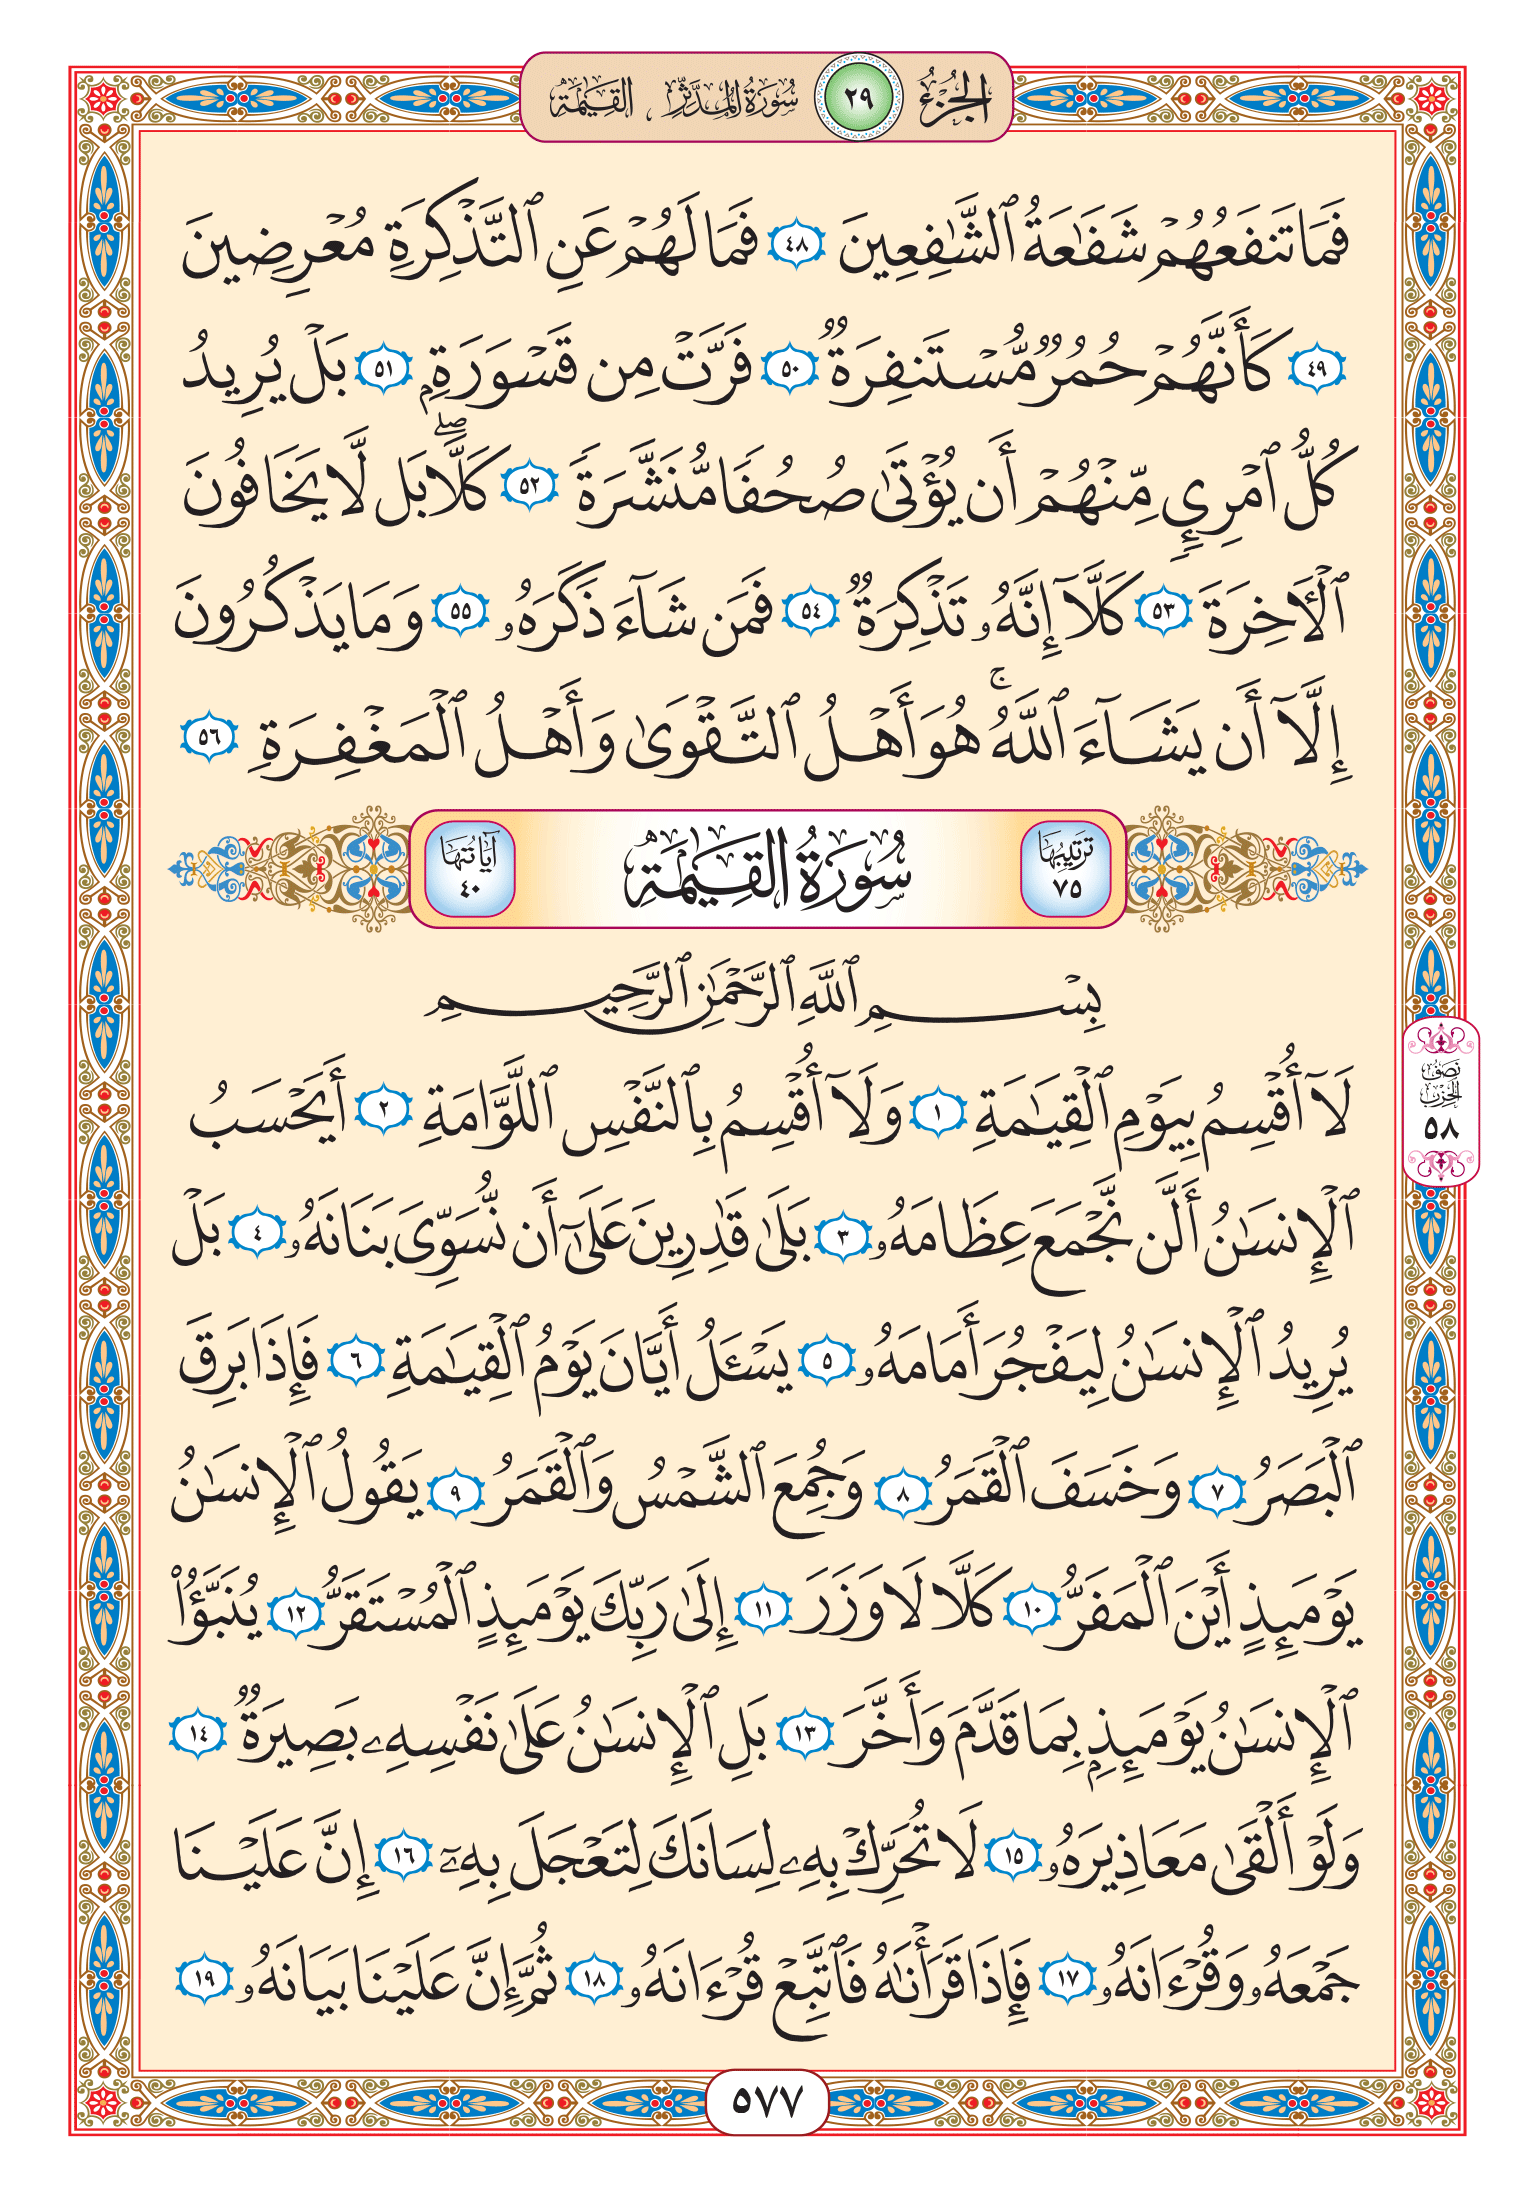 الجزء ٢٩ سورة المدثر ، القيمة
فَمَا تَنفَعُهُمْ شَفَٰعَةُ ٱلشَّٰفِعِينَ ٤٨ فَمَا لَهُمْ عَنِ ٱلتَّذْكِرَةِ مُعْرِضِينَ
٤٩ كَأَنَّهُمْ حُمُرٌ مُّسْتَنفِرَةٌ ٥٠ فَرَّتْ مِن قَسْوَرَةٍۭ ٥١ بَلْ يُرِيدُ
كُلُّ ٱمْرِئٍ مِّنْهُمْ أَن يُؤْتَىٰ صُحُفًا مُّنَشَّرَةً ٥٢ كَلَّاۖ بَل لَّا يَخَافُونَ
ٱلْأَخِرَةَ ٥٣ كَلَّآ إِنَّهُۥ تَذْكِرَةٌ ٥٤ فَمَن شَآءَ ذَكَرَهُۥ ٥٥ وَمَا يَذْكُرُونَ
إِلَّآ أَن يَشَآءَ ٱللَّهُۚ هُوَ أَهْلُ ٱلتَّقْوَىٰ وَأَهْلُ ٱلْمَغْفِرَةِ ٥٦
ترتيبها ٧٥ سُورَةُ القِيَٰمَةِ آياتها ٤٠
بِسْمِ ٱللَّهِ ٱلرَّحْمَٰنِ ٱلرَّحِيمِ
لَآ أُقْسِمُ بِيَوْمِ ٱلْقِيَٰمَةِ ١ وَلَآ أُقْسِمُ بِٱلنَّفْسِ ٱللَّوَّامَةِ ٢ أَيَحْسَبُ
ٱلْإِنسَٰنُ أَلَّن نَّجْمَعَ عِظَامَهُۥ ٣ بَلَىٰ قَٰدِرِينَ عَلَىٰٓ أَن نُّسَوِّىَ بَنَانَهُۥ ٤ بَلْ
يُرِيدُ ٱلْإِنسَٰنُ لِيَفْجُرَ أَمَامَهُۥ ٥ يَسْـَٔلُ أَيَّانَ يَوْمُ ٱلْقِيَٰمَةِ ٦ فَإِذَا بَرِقَ
ٱلْبَصَرُ ٧ وَخَسَفَ ٱلْقَمَرُ ٨ وَجُمِعَ ٱلشَّمْسُ وَٱلْقَمَرُ ٩ يَقُولُ ٱلْإِنسَٰنُ
يَوْمَئِذٍ أَيْنَ ٱلْمَفَرُّ ١٠ كَلَّا لَا وَزَرَ ١١ إِلَىٰ رَبِّكَ يَوْمَئِذٍ ٱلْمُسْتَقَرُّ ١٢ يُنَبَّؤُا۟
ٱلْإِنسَٰنُ يَوْمَئِذٍۭ بِمَا قَدَّمَ وَأَخَّرَ ١٣ بَلِ ٱلْإِنسَٰنُ عَلَىٰ نَفْسِهِۦ بَصِيرَةٌ ١٤
وَلَوْ أَلْقَىٰ مَعَاذِيرَهُۥ ١٥ لَا تُحَرِّكْ بِهِۦ لِسَانَكَ لِتَعْجَلَ بِهِۦٓ ١٦ إِنَّ عَلَيْنَا
جَمْعَهُۥ وَقُرْءَانَهُۥ ١٧ فَإِذَا قَرَأْنَٰهُ فَٱتَّبِعْ قُرْءَانَهُۥ ١٨ ثُمَّ إِنَّ عَلَيْنَا بَيَانَهُۥ ١٩
نصف
الحزب
٥٨
٥٧٧